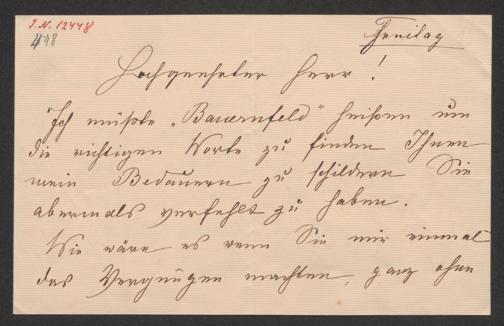 I.N. 12448
448
Freitag
Hochgeehrter Herr!
Ich müßte „Bauernfeld" heißen um
die richtigen Worte zu finden Ihnen
mein Bedauern zu schildern Sie
abermals verfehlt zu haben.
Wie wäre es wenn Sie mir einmal
das Vergnügen machten, ganz ohne